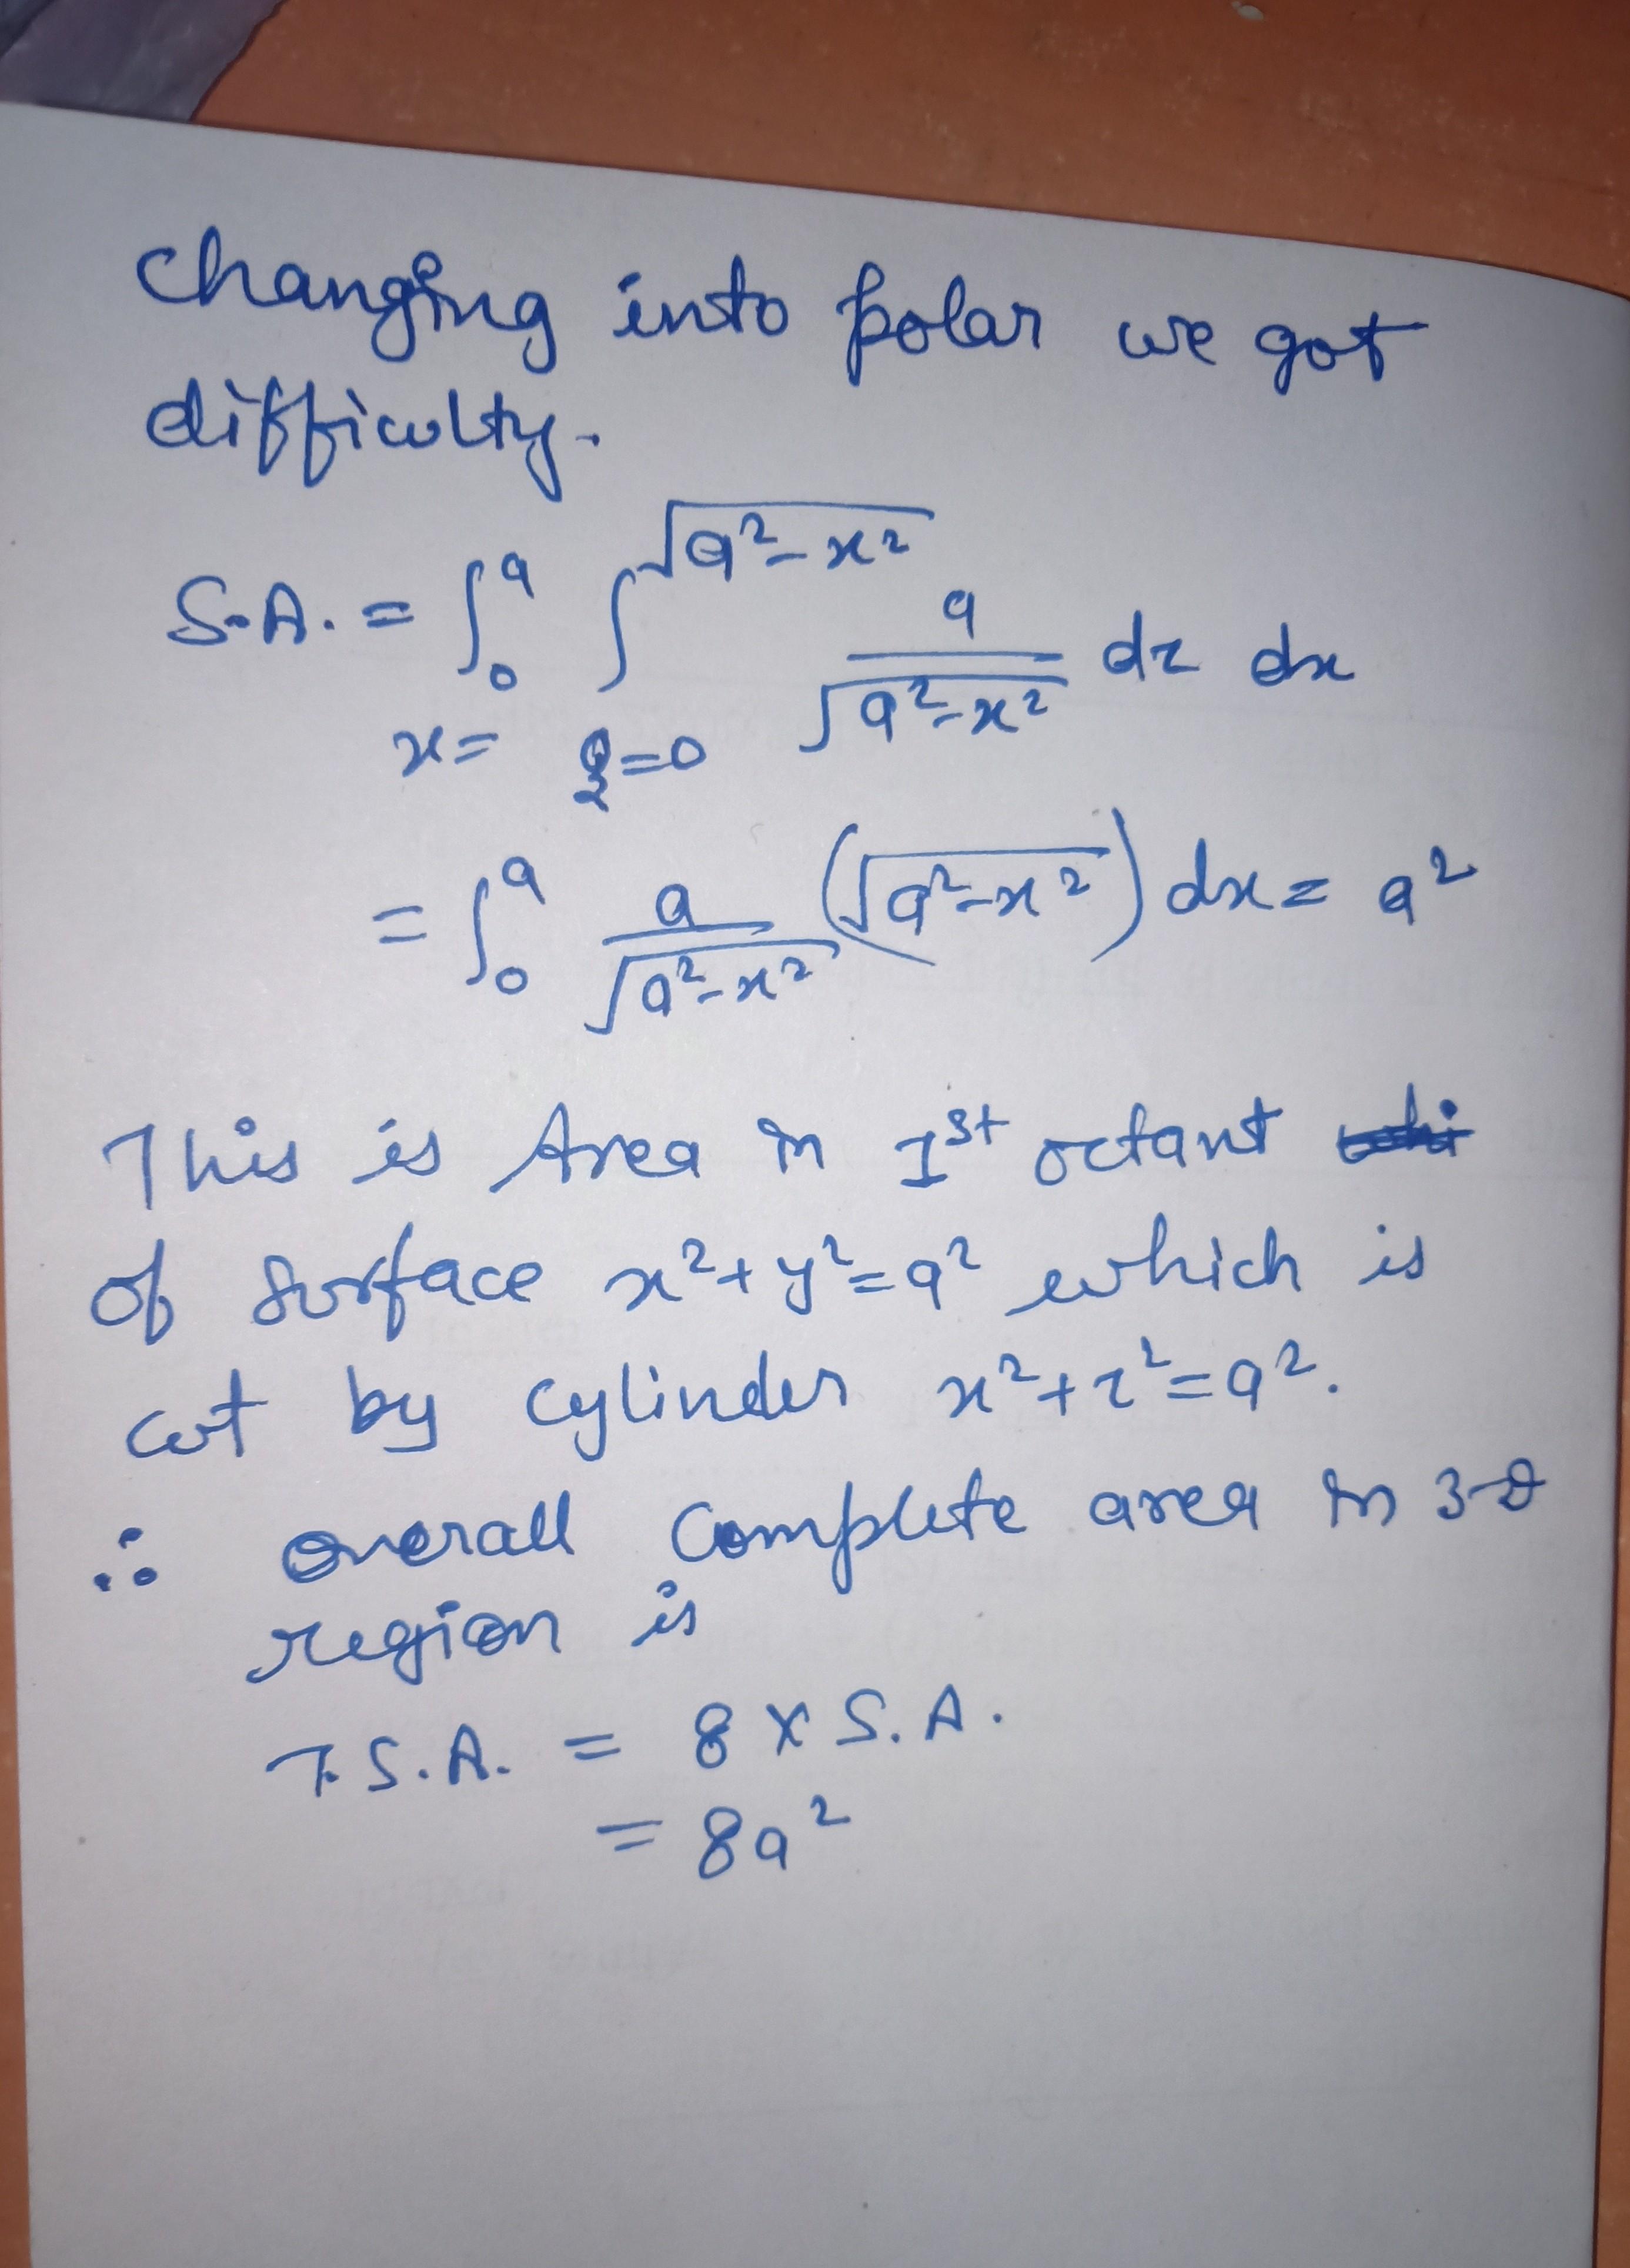 Changing into polar we got
difficulty.
S.A. = ∫₀^a ∫^√(a²-x²) a/√(a²-x²) dz dx
x= z=0
= ∫₀^a a/√(a²-x²) (√(a²-x²)) dx = a²
This is Area in 1st octant
of surface x²+y²=a² which is
cut by cylinder x²+z²=a².
∴ overall complete area in 3-D
region is
T.S.A. = 8 × S.A.
= 8a²